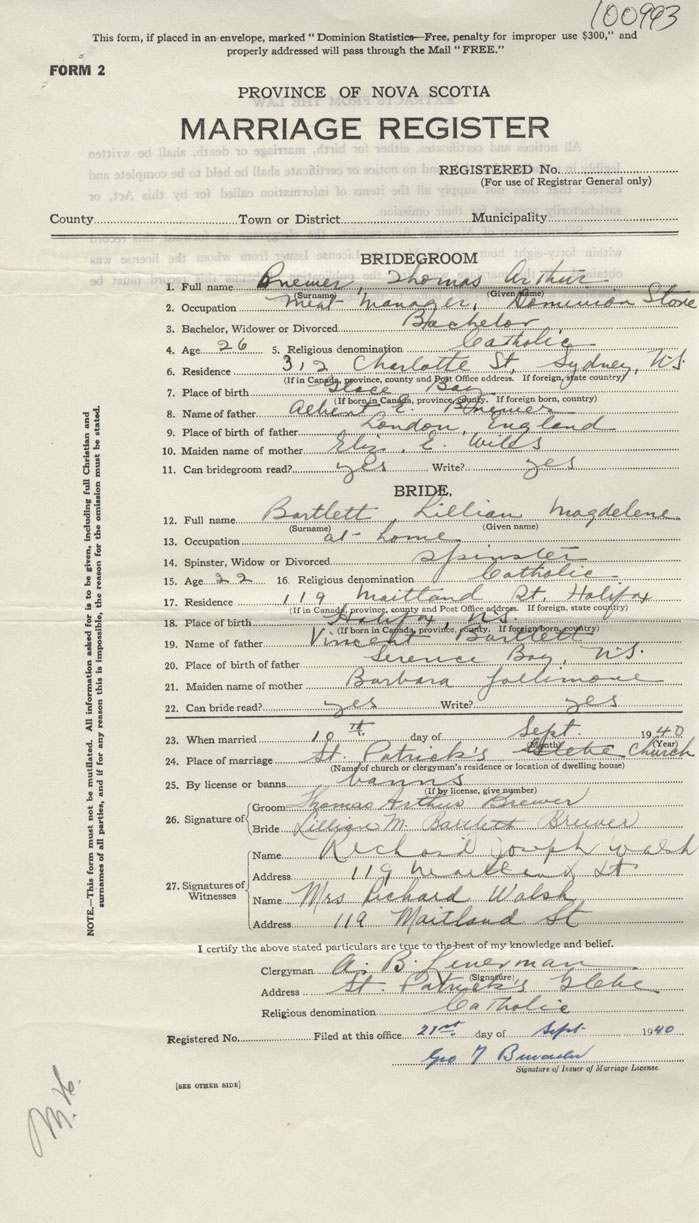 100993
This form, if placed in an envelope, marked "Dominion Statistics—Free, penalty for improper use $300," and
properly addressed will pass through the Mail "FREE."
FORM 2
PROVINCE OF NOVA SCOTIA
MARRIAGE REGISTER
REGISTERED No.
(For use of Registrar General only)
County Town or District Municipality
BRIDEGROOM
1. Full name Brewer, Thomas Arthur
(Surname) (Given name)
2. Occupation Meat Manager, Dominion Store
3. Bachelor, Widower or Divorced Bachelor
4. Age 26 5. Religious denomination Catholic
6. Residence 312 Charlotte St, Sydney, N.S
(If in Canada, province, county and Post Office address. If foreign, state country)
7. Place of birth Glace Bay
(If born in Canada, province, county. If foreign born, country)
8. Name of father Albert E. Brewer
9. Place of birth of father London, England
10. Maiden name of mother Eliz. E. Wills
11. Can bridegroom read? yes Write? yes
BRIDE.
12. Full name Bartlett, Lillian Magdelene
(Surname) (Given name)
13. Occupation at-home
14. Spinster, Widow or Divorced Spinster
15. Age 22 16. Religious denomination Catholic
17. Residence 119 Maitland St. Halifax
(If in Canada, province, county and Post Office address. If foreign, state country)
18. Place of birth Halifax, N.S.
(If born in Canada, province, county. If foreign born, country)
19. Name of father Vincent Bartlett
20. Place of birth of father Terence Bay, N.S.
21. Maiden name of mother Barbara Jollimore
22. Can bride read? yes Write? yes
23. When married 10th day of Sept. 1940
(Month) (Year)
24. Place of marriage St. Patrick's Glebe Church
(Name of church or clergyman's residence or location of dwelling house)
25. By license or banns banns
(If by license, give number)
26. Signature of
Groom Thomas Arthur Brewer
Bride Lillian M. Bartlett Brewer
27. Signatures of Witnesses
Name Richard Joseph Walsh
Address 119 Maitland St
Name Mrs Richard Walsh
Address 119 Maitland St
I certify the above stated particulars are true to the best of my knowledge and belief.
Clergyman A. B.
(Signature)
Address St. Patrick's Glebe
Religious denomination Catholic
Registered No. Filed at this office 21st day of Sept. 1940
Geo
Signature of Issuer of Marriage License.
[SEE OTHER SIDE]
NOTE.—This form must not be mutilated. All information asked for is to be given, including full Christian and
surnames of all parties, and if for any reason this is impossible, the reason for the omission must be stated.